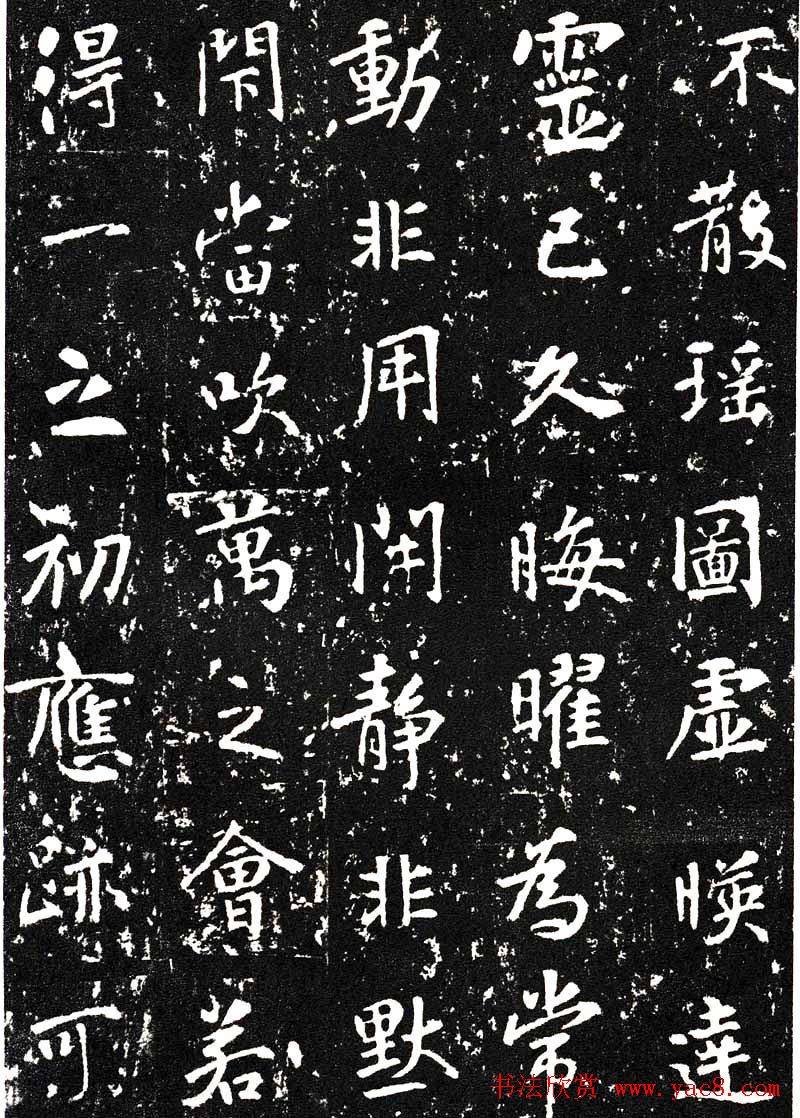 不散瑶圖虛暎達
靈已久晦曜為常
動非用開靜非默
閇當吹萬之會若
得一之初應跡可
书法欣赏 www.yac8.com